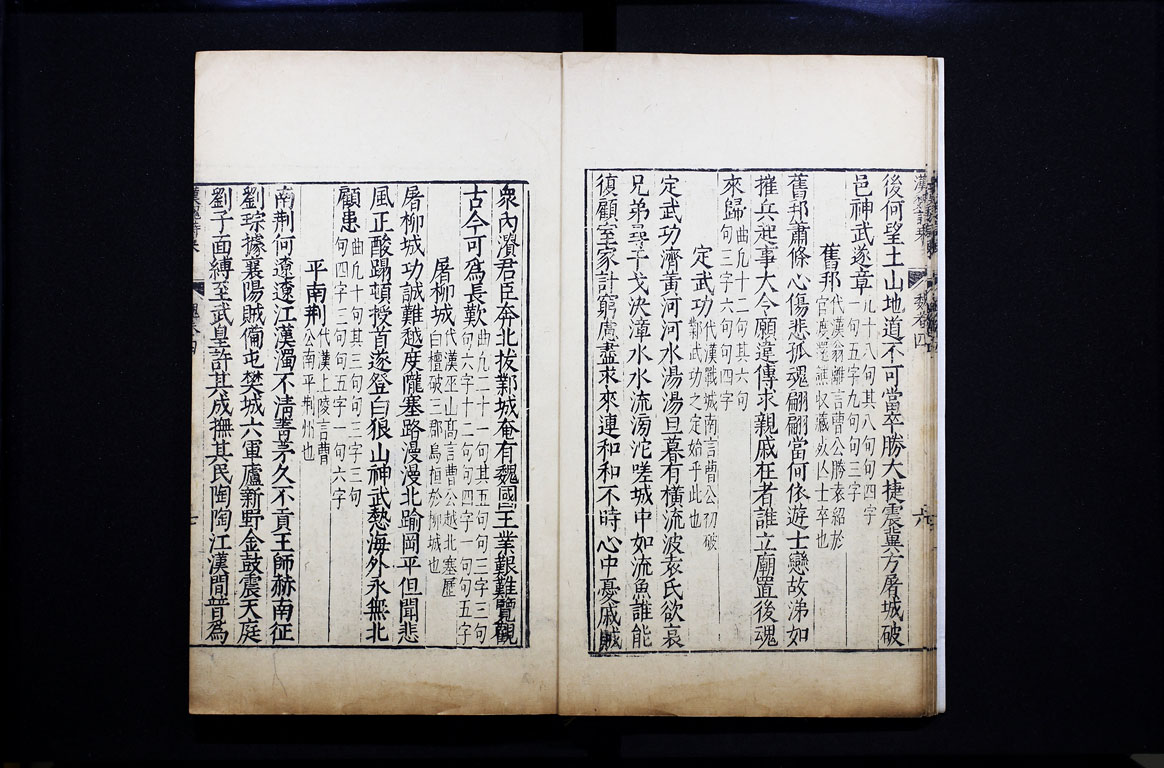 漢魏詩乘 魏卷四 六
後何望土山地道不可當畢勝大捷震冀方屠城破
邑神武遂章
九十八句其八句句四字
一句五字九句句三字
舊邦
代漢翁離言曹公勝袁紹於
官度還譙收藏死亡士卒也
舊邦蕭條心傷悲孤魂翩翩當何依遊士戀故涕如
摧兵起事大令願違傳求親戚在者誰立廟置後魂
來歸
曲凡十二句其六句
句三字六句句四字
定武功
代漢戰城南言曹公初破
鄴武功之定始乎此也
定武功濟黃河河水湯湯旦暮有橫流波袁氏欲衰
兄弟尋干戈決漳水水流滂沱嗟城中如流魚誰能
復顧室家計窮慮盡求來連和和不時心中憂戚賊
衆內潰君臣奔北拔鄴城奄有魏國王業艱難覽觀
古今可爲長歎
曲凡二十一句其五句句三字三句
句六字十二句句四字一句句五字
屠柳城
代漢巫山高言曹公越北塞歷
白檀破三郡烏桓於柳城也
屠柳城功誠難越度隴塞路漫漫北踰岡平但聞悲
風正酸蹋頓授首遂登白狼山神武慹海外永無北
顧患
曲凡十句其三句句三字三句
句四字三句句五字一句六字
平南荆
代漢上陵言曹
公南平荆州也
南荆何遼遼江漢濁不清菁茅久不貢王師赫南征
劉琮據襄陽賊備屯樊城六軍廬新野金鼓震天庭
劉子面縛至武皇許其成撫其民陶陶江漢間普爲
七